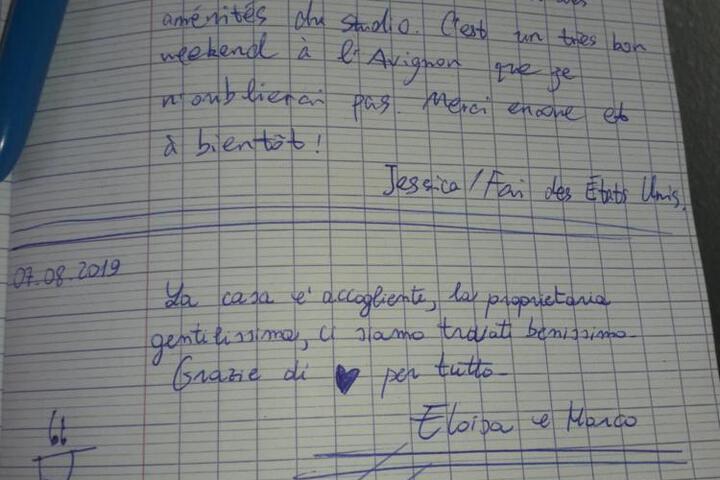 aménités du studio. C'est un très bon
weekend à l'Avignon que je
n'oublierai pas. Merci encore et
à bientôt!
Jessica / Fai des États Unis.
07.08.2019
La casa e' accogliente, la proprietaria
gentilissima, ci siamo trovati benissimo.
Grazie di ♥ per tutto.
Eloisa e Marco